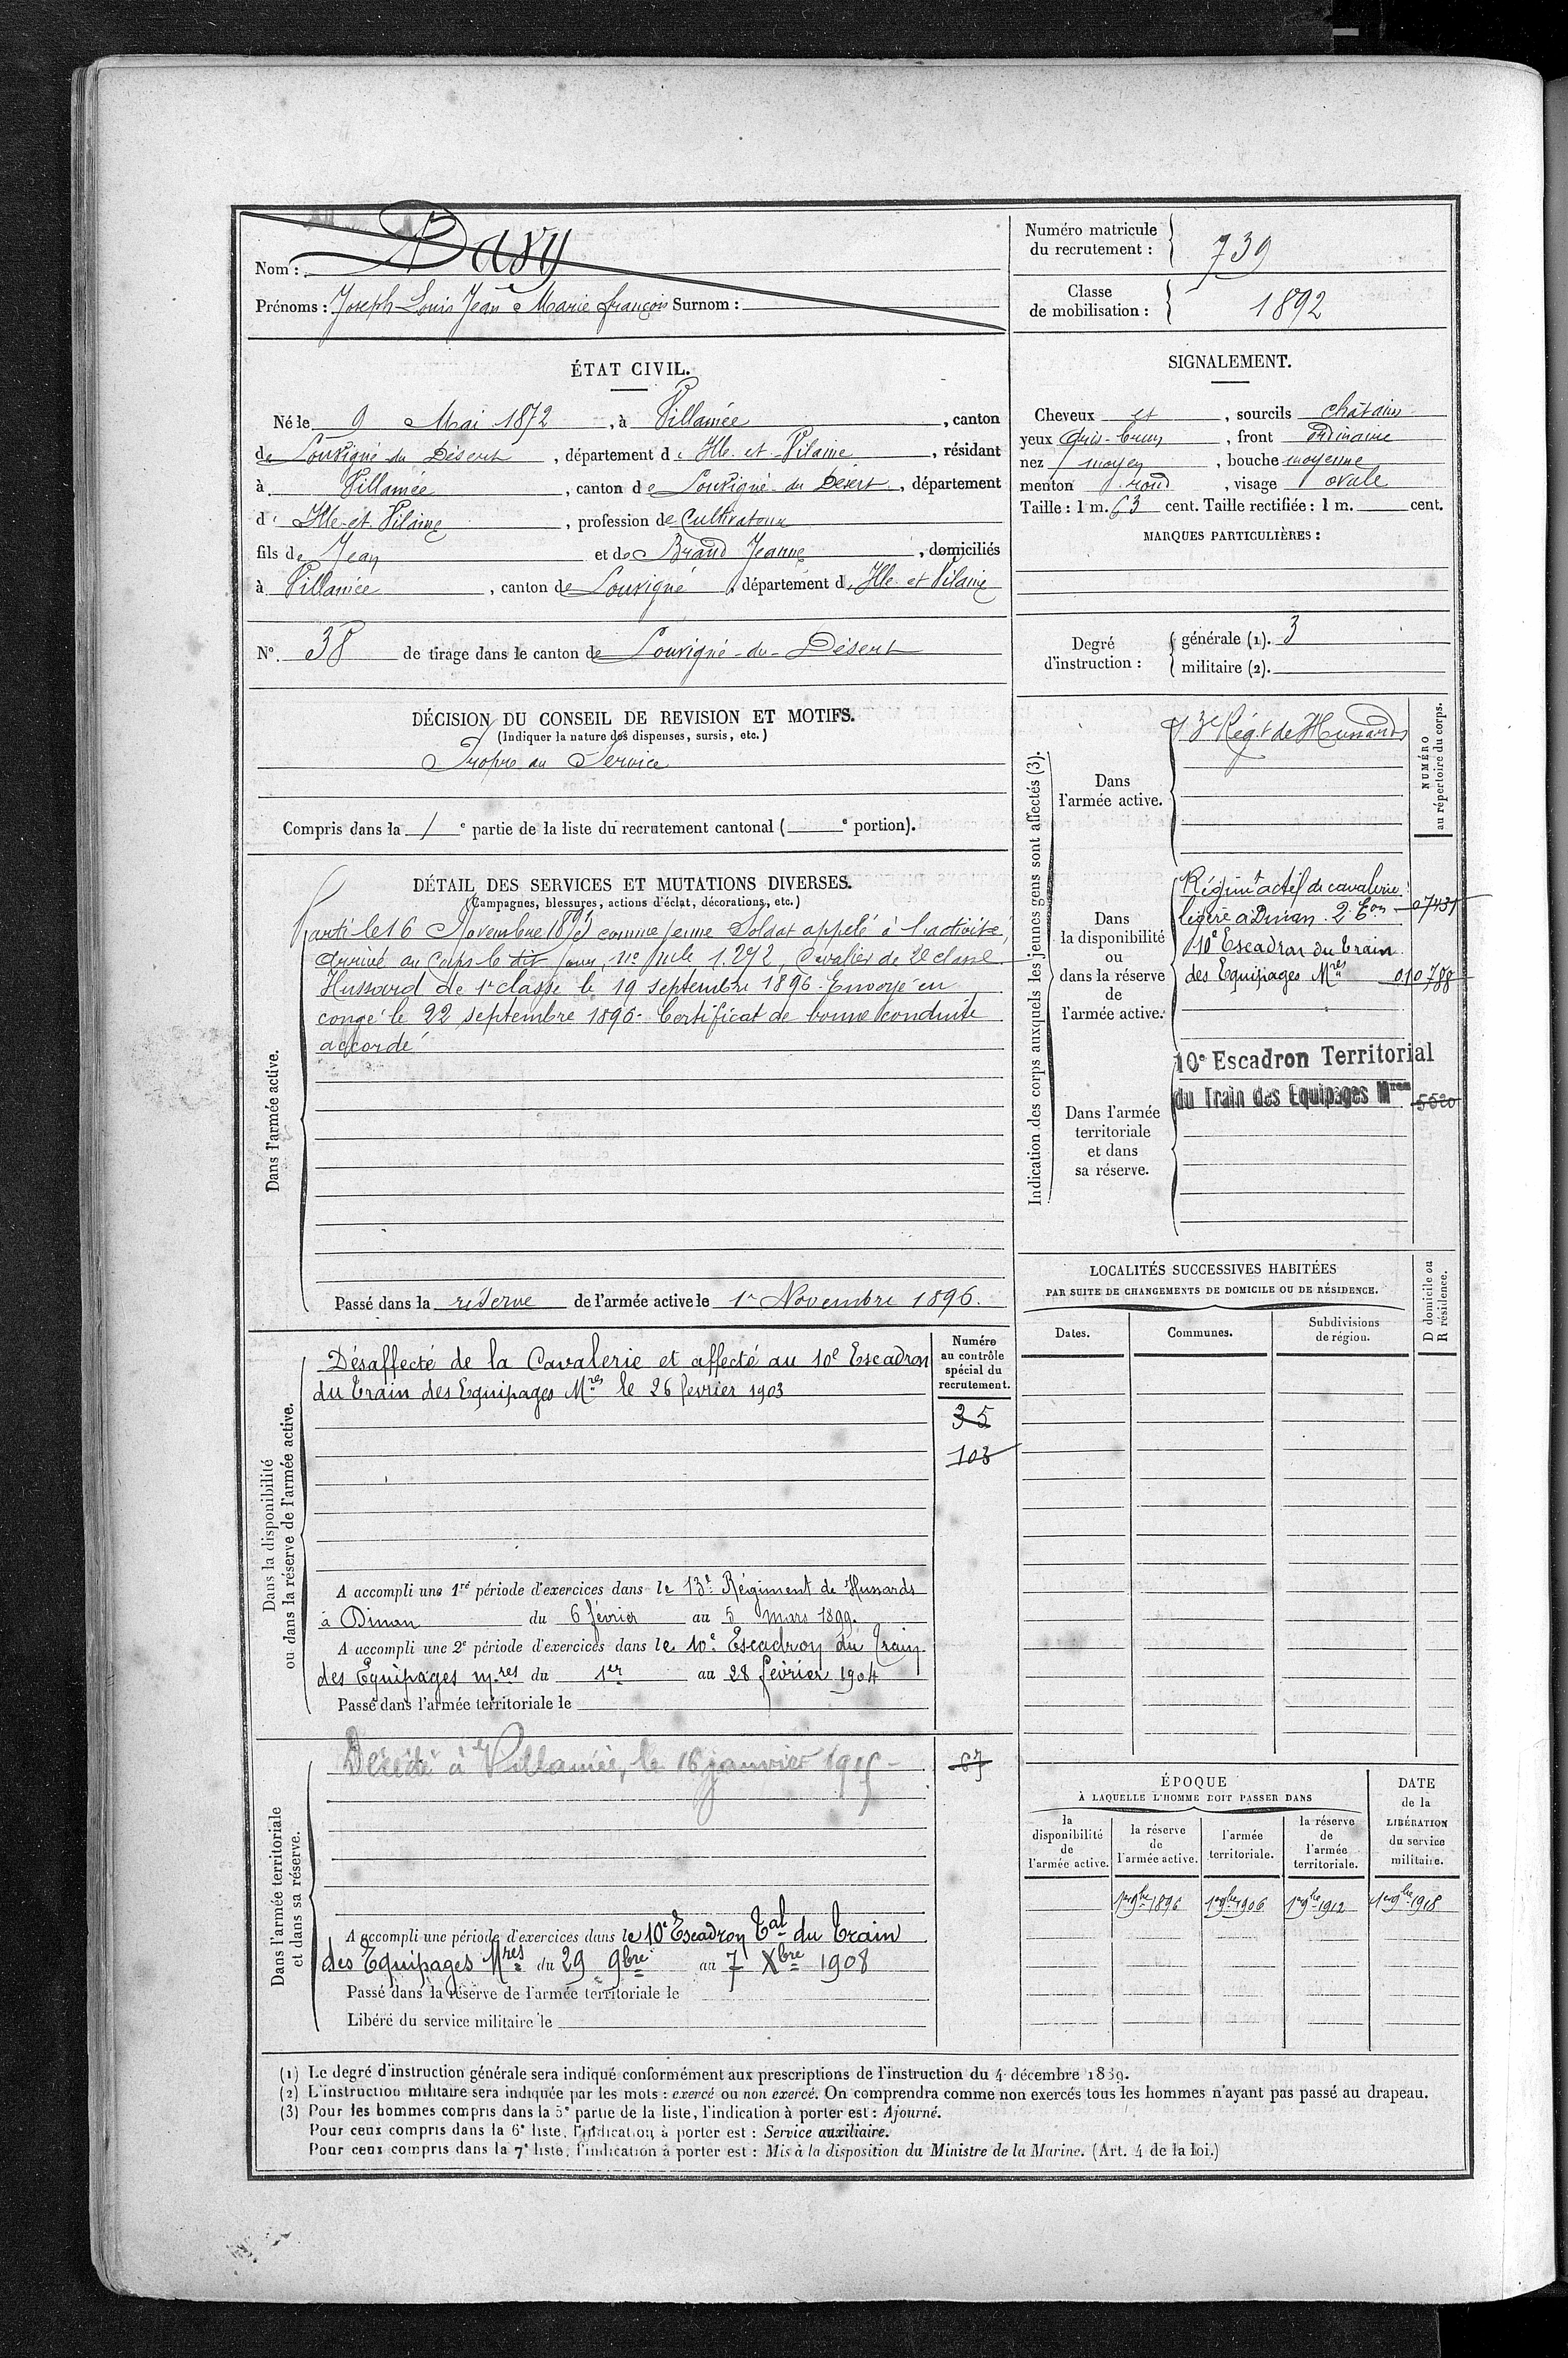 Nom : Davy
Prénoms : Joseph Louis Jean Marie François Surnom :
Numéro matricule du recrutement : 739
Classe de mobilisation : 1892
ÉTAT CIVIL.
Né le 9 Mai 1872, à Villamée, canton
de Louvigné du Désert, département d'Ille-et-Vilaine, résidant
à Villamée, canton de Louvigné-du-Désert, département
d'Ille-et-Vilaine, profession de Cultivateur
fils de Jean et de Brand Jeanne, domiciliés
à Villamée, canton de Louvigné, département d'Ille-et-Vilaine
N° 38 de tirage dans le canton de Louvigné-du-Désert
SIGNALEMENT.
Cheveux et, sourcils châtains
yeux Gris-brun, front ordinaire
nez moyen, bouche moyenne
menton rond, visage ovale
Taille : 1 m. 63 cent. Taille rectifiée : 1 m. cent.
MARQUES PARTICULIÈRES :
Degré d'instruction : générale (1). 3
militaire (2).
DÉCISION DU CONSEIL DE REVISION ET MOTIFS.
(Indiquer la nature des dispenses, sursis, etc.)
Propre au Service
Compris dans la 1e partie de la liste du recrutement cantonal ( e portion).
DÉTAIL DES SERVICES ET MUTATIONS DIVERSES.
(Campagnes, blessures, actions d'éclat, décorations, etc.)
Dans l'armée active.
Parti le 16 Novembre 1893 comme jeune Soldat appelé à l'activité,
Arrivé au Corps le dit jour, no mle 1.272, Cavalier de 2e classe.
Hussard de 1e classe le 19 septembre 1896. Envoyé en
congé le 22 septembre 1896. Certificat de bonne conduite
accordé
Passé dans la réserve de l'armée active le 1er Novembre 1896.
Indication des corps auxquels les jeunes gens sont affectés (3).
NUMÉRO au répertoire du corps.
Dans l'armée active.
13e Régt de Hussards
Dans la disponibilité ou dans la réserve de l'armée active.
Régimt actif de cavalerie
légère à Dinan. 2 Eon 07431
10e Escadron du Train
des Equipages Mres 010788
Dans l'armée territoriale et dans sa réserve.
10e Escadron Territorial
du Train des Equipages Mres 5520
Dans la disponibilité ou dans la réserve de l'armée active.
Numéro au contrôle spécial du recrutement.
Désaffecté de la Cavalerie et affecté au 10e Escadron
du Train des Equipages Mres le 26 février 1903
35
103
A accompli une 1re période d'exercices dans le 13e Régiment de Hussards
à Dinan du 6 février au 5 mars 1899.
A accompli une 2e période d'exercices dans le 10e Escadron du Train
des Equipages mres du 1er au 28 février 1904
Passé dans l'armée territoriale le
Dans l'armée territoriale et dans sa réserve.
Décédé à Villamée, le 16 janvier 1915 -
67
A accompli une période d'exercices dans le 10e Escadron Tal du Train
des Equipages Mres du 29 9bre au 7 Xbre 1908
Passé dans la réserve de l'armée territoriale le
Libéré du service militaire le
LOCALITÉS SUCCESSIVES HABITÉES
PAR SUITE DE CHANGEMENTS DE DOMICILE OU DE RÉSIDENCE.
Dates. Communes. Subdivisions de région. D domicile ou R résidence.
ÉPOQUE
À LAQUELLE L'HOMME DOIT PASSER DANS
la disponibilité de l'armée active. la réserve de l'armée active. l'armée territoriale. la réserve de l'armée territoriale. DATE de la LIBÉRATION du service militaire.
1er 9bre 1896 1er 9bre 1906 1er 9bre 1912 1er 9bre 1918
(1) Le degré d'instruction générale sera indiqué conformément aux prescriptions de l'instruction du 4 décembre 1889.
(2) L'instruction militaire sera indiquée par les mots : exercé ou non exercé. On comprendra comme non exercés tous les hommes n'ayant pas passé au drapeau.
(3) Pour les hommes compris dans la 5e partie de la liste, l'indication à porter est : Ajourné.
Pour ceux compris dans la 6e liste, l'indication à porter est : Service auxiliaire.
Pour ceux compris dans la 7e liste, l'indication à porter est : Mis à la disposition du Ministre de la Marine. (Art. 4 de la loi.)